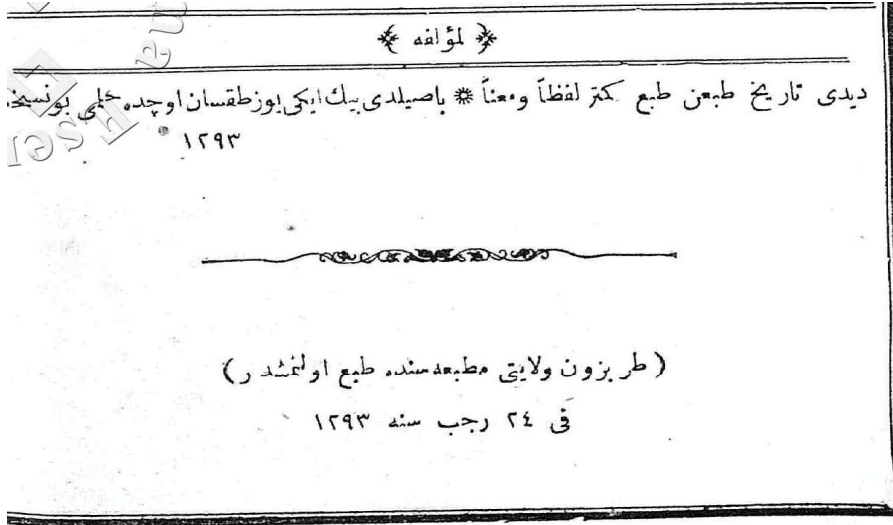 لمؤلفه
دیدی تاریخ طبعن طبع کمتر لفظاً ومعناً ❋ باصیلدی بیك ایکی یوز طقسان اوچده حلمی بونسخه
١٢٩٣
(طربزون ولایتی مطبعه سنده طبع اولنمشدر)
فی ٢٤ رجب سنه ١٢٩٣